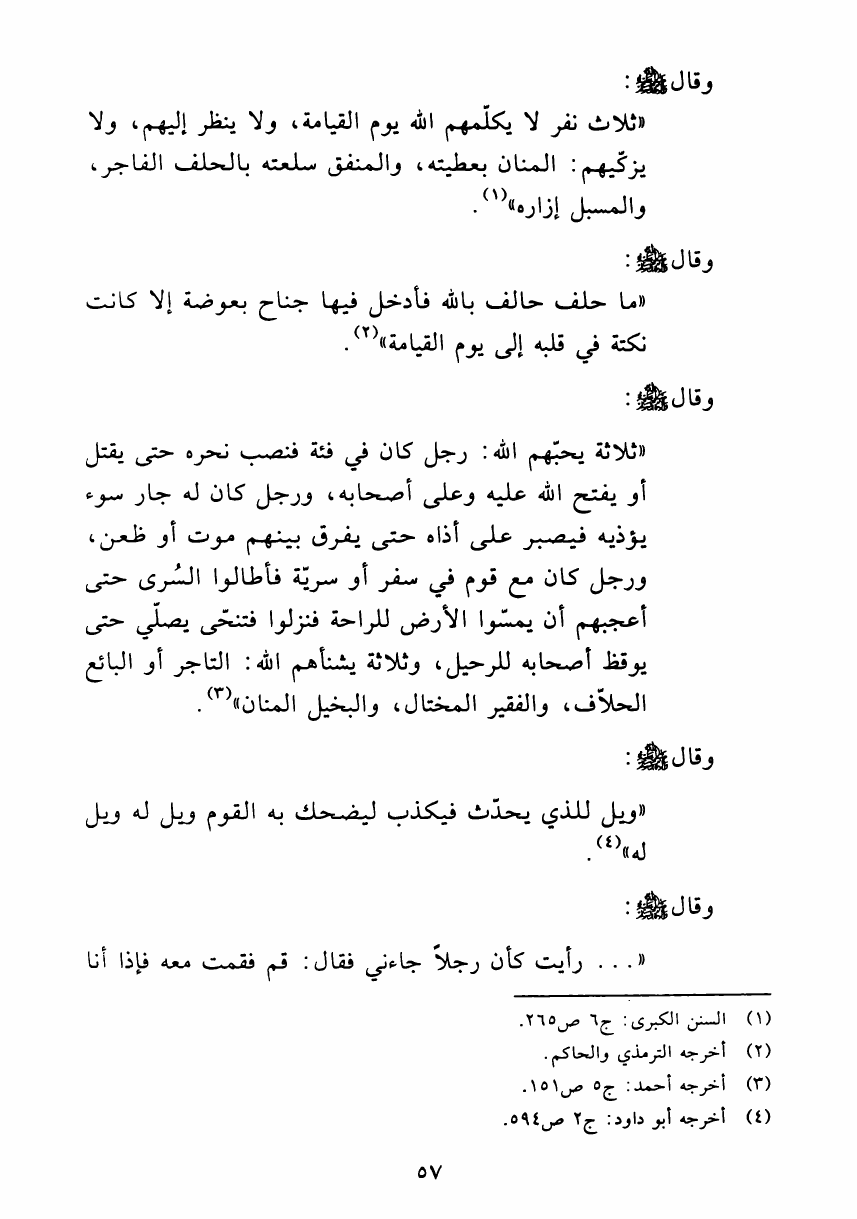 وقال ﷺ :
«ثلاث نفر لا يكلّمهم الله يوم القيامة، ولا ينظر إليهم، ولا
يزكّيهم: المنان بعطيته، والمنفق سلعته بالحلف الفاجر،
والمسبل إزاره»(١).
وقال ﷺ :
«ما حلف حالف بالله فأدخل فيها جناح بعوضة إلا كانت
نكتة في قلبه إلى يوم القيامة»(٢).
وقال ﷺ :
«ثلاثة يحبّهم الله: رجل كان في فئة فنصب نحره حتى يقتل
أو يفتح الله عليه وعلى أصحابه، ورجل كان له جار سوء
يؤذيه فيصبر على أذاه حتى يفرق بينهم موت أو ظعن،
ورجل كان مع قوم في سفر أو سريّة فأطالوا السُرى حتى
أعجبهم أن يمسّوا الأرض للراحة فنزلوا فتنحّى يصلّي حتى
يوقظ أصحابه للرحيل، وثلاثة يشنأهم الله: التاجر أو البائع
الحلاّف، والفقير المختال، والبخيل المنان»(٣).
وقال ﷺ :
«ويل للذي يحدّث فيكذب ليضحك به القوم ويل له ويل
له»(٤).
وقال ﷺ :
«... رأيت كأن رجلاً جاءني فقال: قم فقمت معه فإذا أنا
(١) السنن الكبرى: ج٦ ص٢٦٥.
(٢) أخرجه الترمذي والحاكم.
(٣) أخرجه أحمد: ج٥ ص١٥١.
(٤) أخرجه أبو داود: ج٢ ص٥٩٤.
٥٧